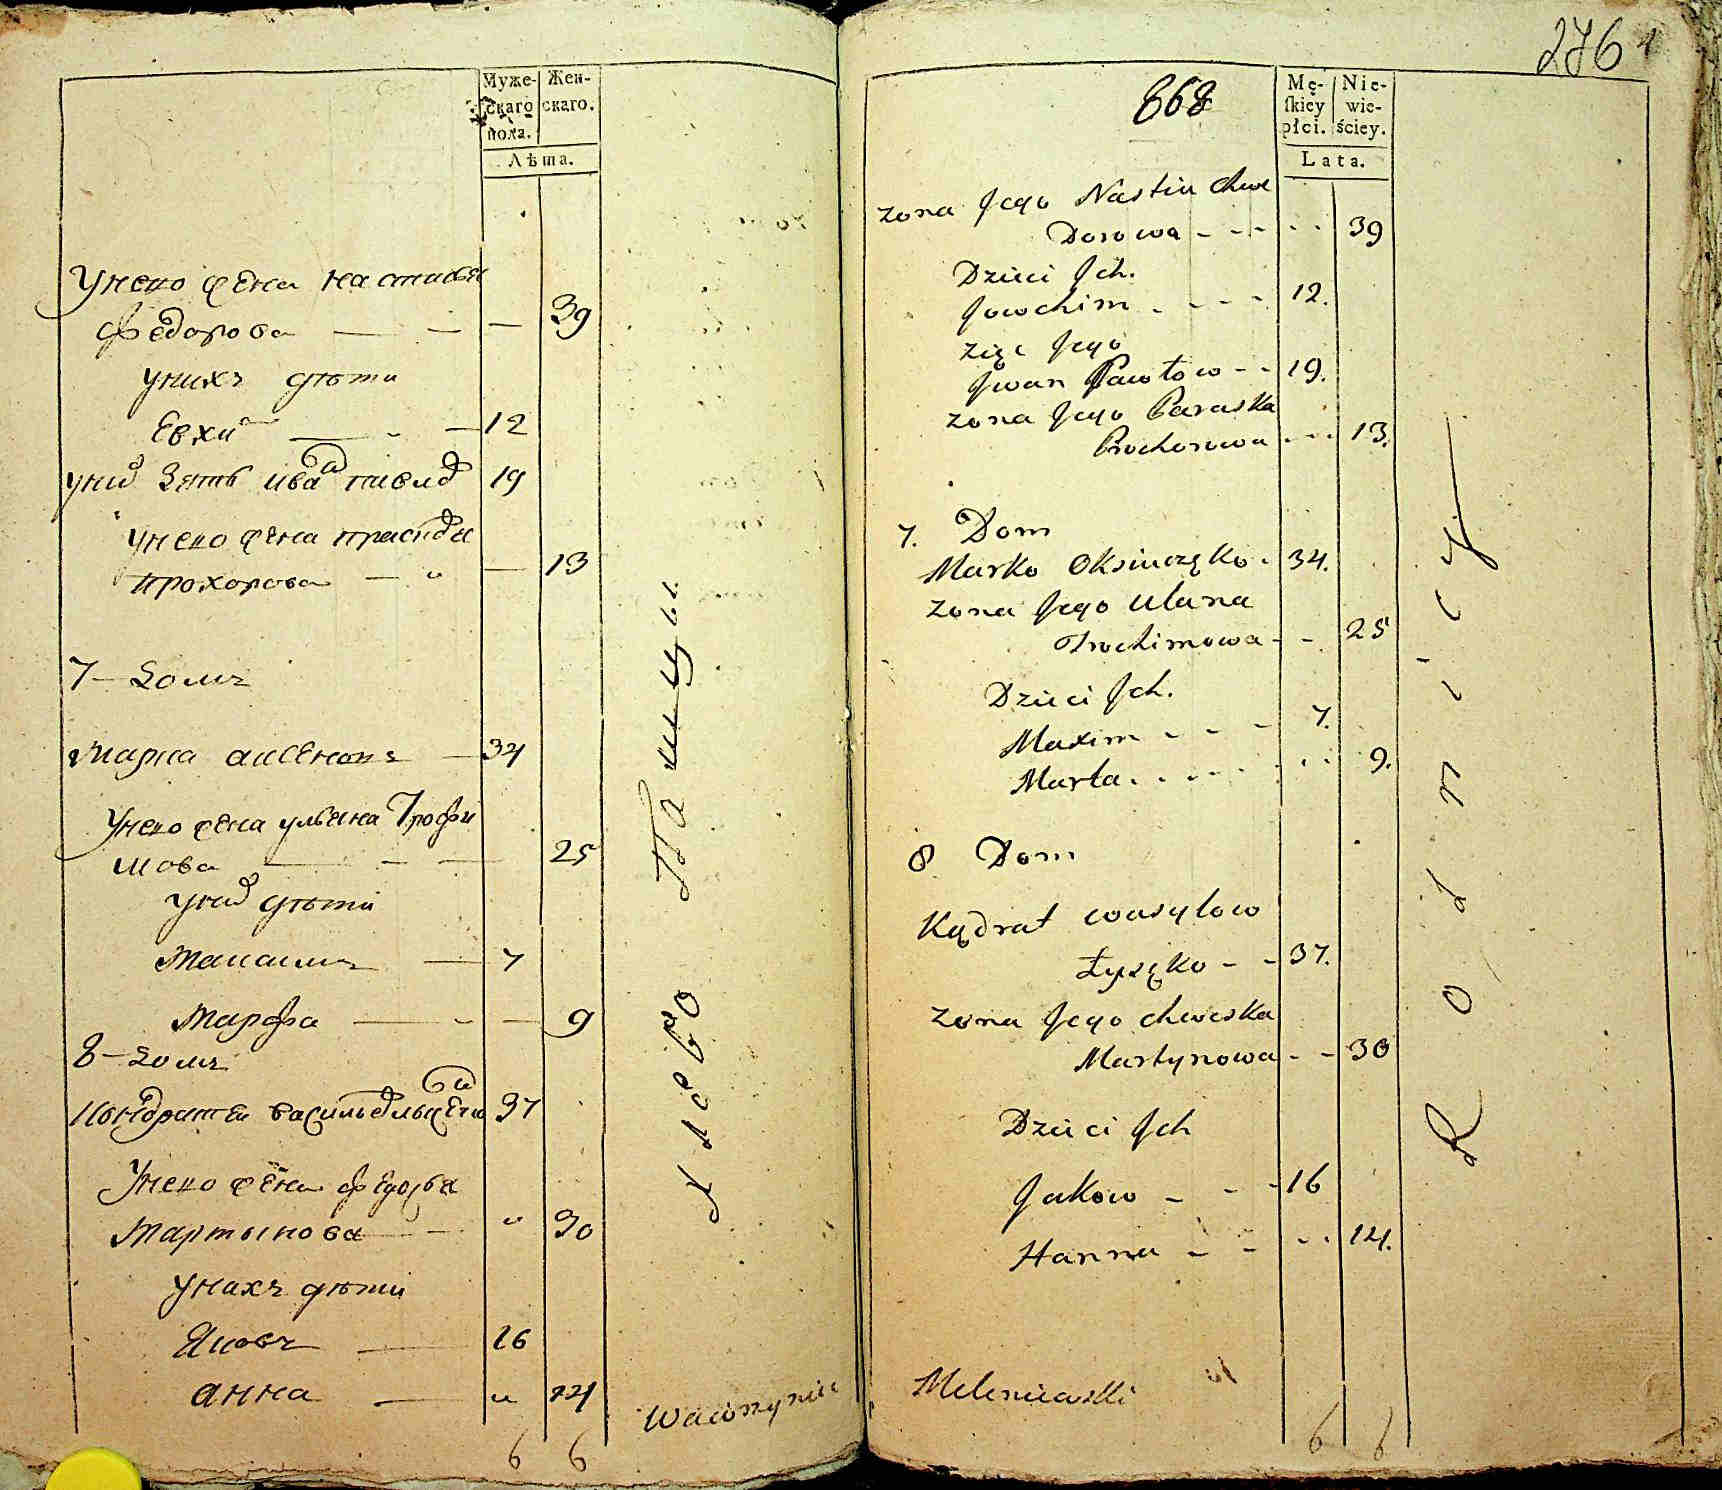 Муже-
скаго
пола.
Жен-
скаго.
Лѣта.
У него жена настасья
федорова — — — 39
у нихъ дѣти
Евхим — - — 12
у них зять иван павлов 19
У него жена прасковья
прохорова — " — 13
7 — Домъ
Марко аксеномъ — 34
У него жена ульяна Трофи
мова — - — 25
у них дѣти
Максимъ — 7
Марфа — - — 9
8 — Домъ
Кондратей васильев лысенко 37
У него жена федосья
Мартынова — - " 30
У нихъ дѣти
Яковъ — 16
анна — " 14
6 6
Хлѣбо Пашцы
276
868
Mę-
skiey
płci.
Nie-
wie-
ściey.
Lata.
żona Jego Nastia Chwe
Dorowa - - - - - 39
Dzieci Jch.
Jowchim - - - - 12.
Zięć Jego
Jwan Pawłow - - 19.
żona Jego Paraska
Prochorowa - - - 13.
7. Dom
Marko Oksiuczęko - 34.
żona Jego Ulana
Trochimowa - - 25
Dzieci Jch.
Maxim - - - 7.
Marta - - - - - - 9.
8 Dom
Kądrat Wasylow
Łysęko - - 37.
żona Jego Chweska
Martynowa - - 30
Dzieci Jch
Jakow - - - 16
Hanna - - - - 14.
6 6
Rolnicy